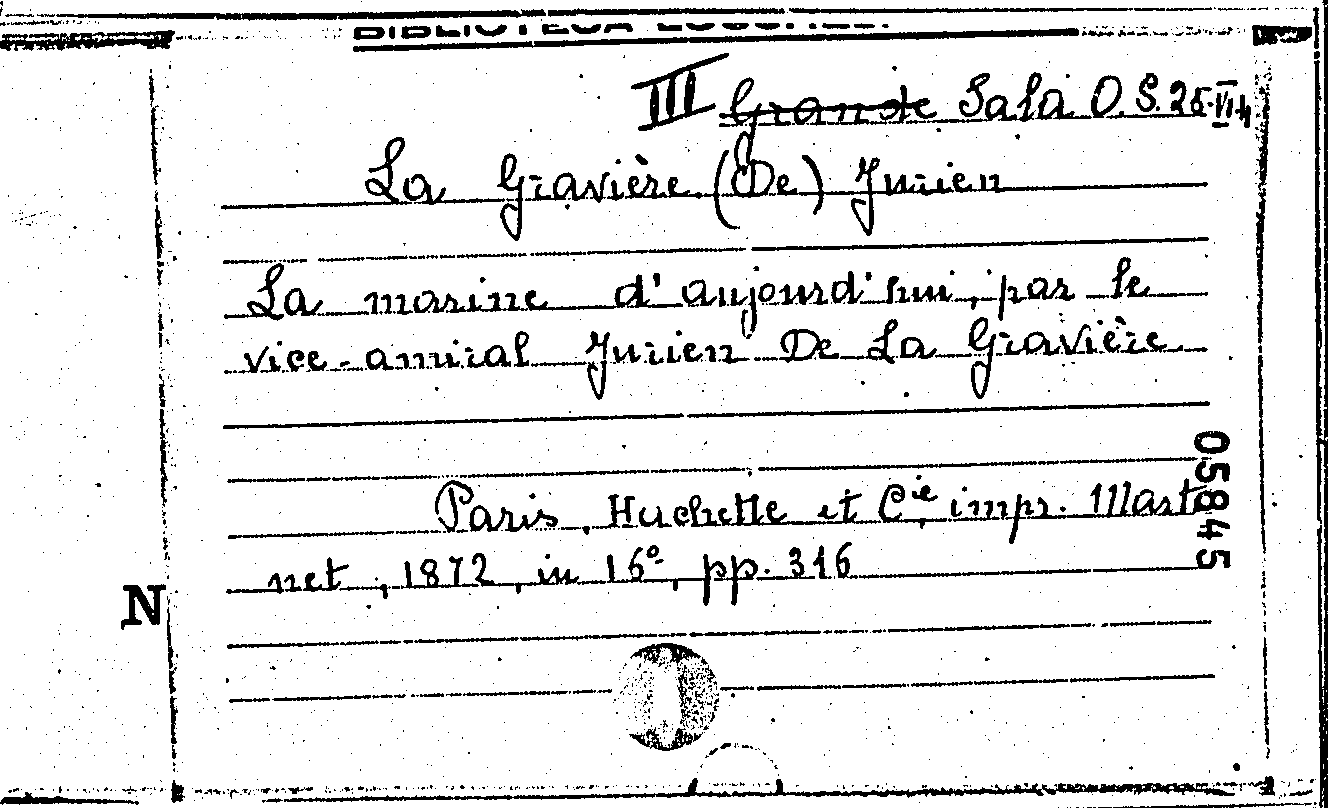 BIBLIOTECA
III Grande Sala O. S. 25.VI.4
La Gravière (De) Jurien
La marine d'aujourd'hui, par le
vice-amiral Jurien De La Gravière
Paris, Hachette et Cie, impr. Marti
net, 1872, in 16º, pp. 316
N
05845